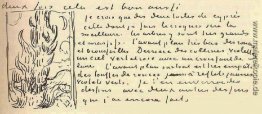 deux fois cela est bon aussi
Je crois que des deux toiles de cyprès
celle dont je fais le croquis sera la
meilleure. les arbres y sont très grands
et massifs. l'avant plan très bas des ronces
et broussailles. Derrière des collines violettes
un ciel vert et rose avec un croissant de
lune. L'avant plan surtout est très empâté
des touffes de ronces à reflets jaunes
violets verts. Je t'en enverrai des
dessins avec deux autres dessins
que j'ai encore faits